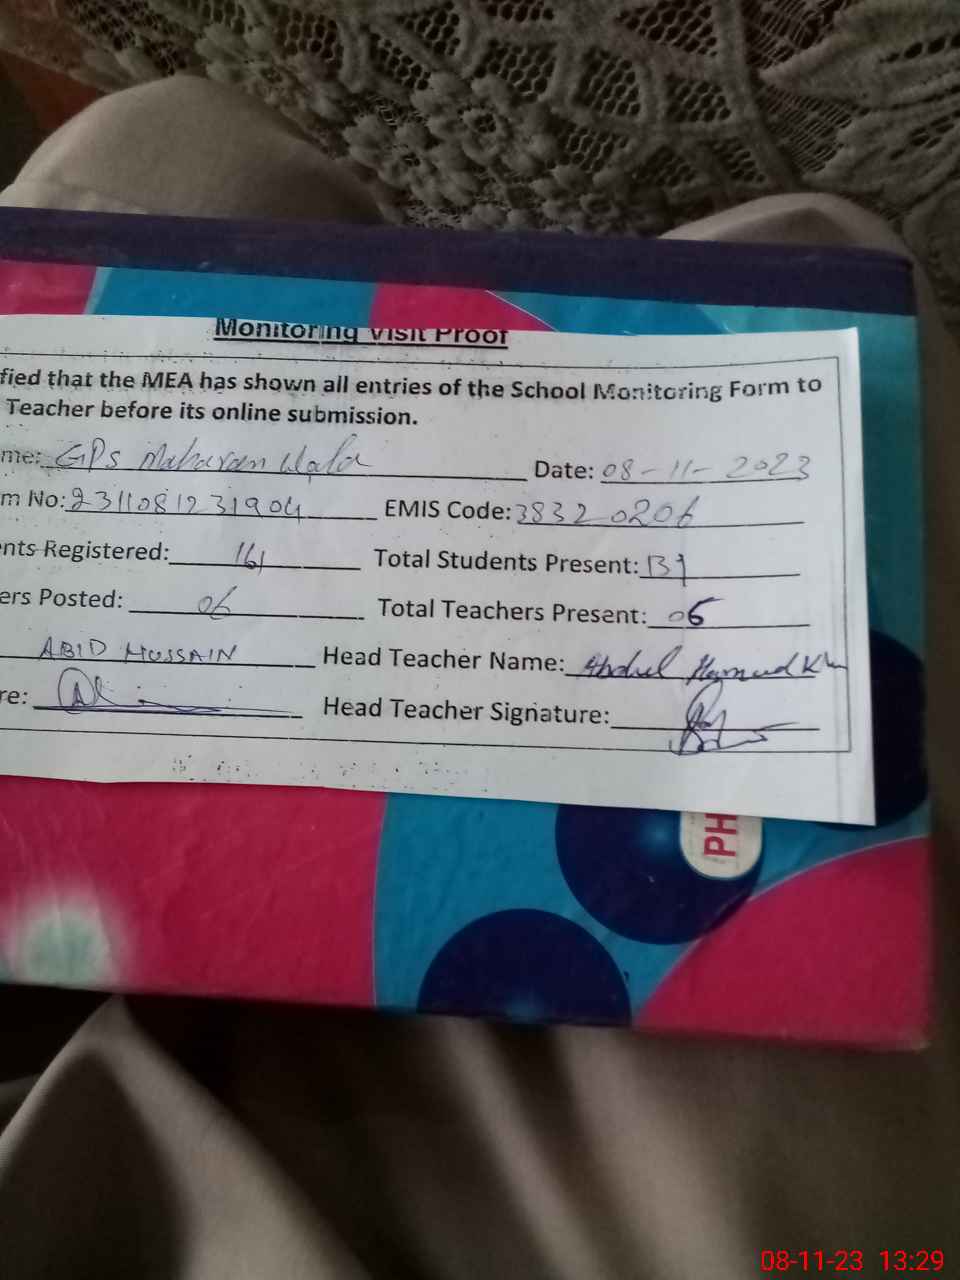 Monitoring Visit Proof
fied that the MEA has shown all entries of the School Monitoring Form to
Teacher before its online submission.
me: GPS Maharan Wala Date: 08-11-2023
m No: 2311081231904 EMIS Code: 38320206
nts Registered: 161 Total Students Present:
ers Posted: 06 Total Teachers Present: 05
ABID HUSSAIN Head Teacher Name: Abdul Hameed Khan
re: Head Teacher Signature:
PH
08-11-23 13:29